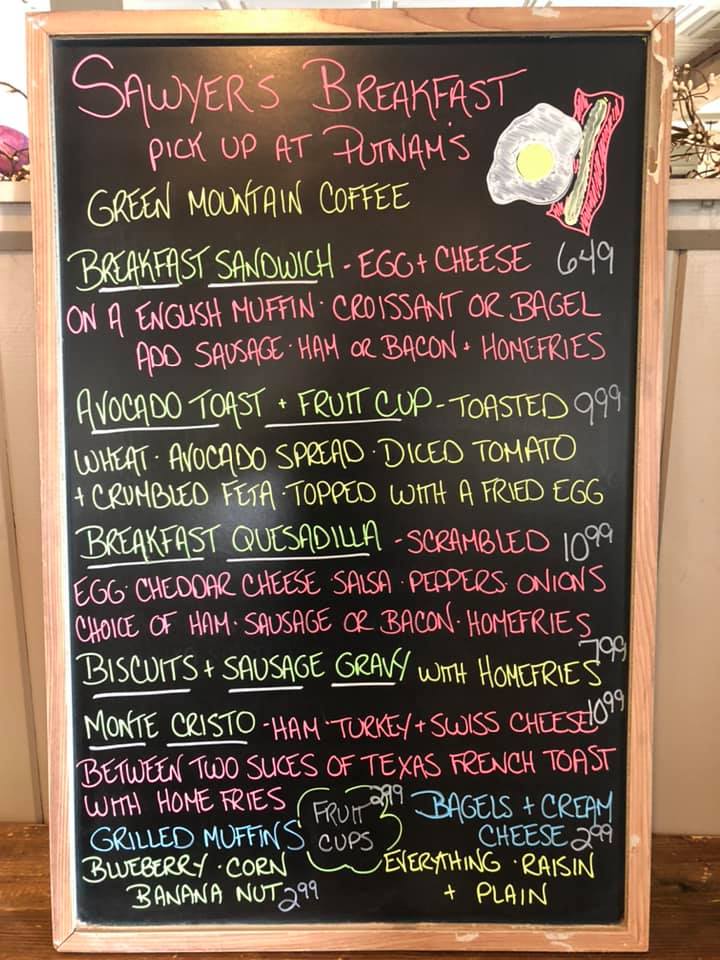 SAWYERS BREAKFAST
PICK UP AT PUTNAM'S
GREEN MOUNTAIN COFFEE
BREAKFAST SANDWICH - EGG + CHEESE 649
ON A ENGLISH MUFFIN · CROISSANT OR BAGEL
ADD SAUSAGE · HAM OR BACON + HOMEFRIES
AVOCADO TOAST + FRUIT CUP - TOASTED 999
WHEAT · AVOCADO SPREAD · DICED TOMATO
+ CRUMBLED FETA · TOPPED WITH A FRIED EGG
BREAKFAST QUESADILLA - SCRAMBLED 1099
EGG · CHEDDAR CHEESE · SALSA · PEPPERS · ONIONS
CHOICE OF HAM · SAUSAGE OR BACON · HOMEFRIES
BISCUITS + SAUSAGE GRAVY WITH HOMEFRIES 799
MONTE CRISTO - HAM · TURKEY + SWISS CHEESE 1099
BETWEEN TWO SLICES OF TEXAS FRENCH TOAST
WITH HOME FRIES
FRUIT 299
CUPS
GRILLED MUFFINS
BLUEBERRY · CORN
BANANA NUT 299
BAGELS + CREAM
CHEESE 299
EVERYTHING · RAISIN
+ PLAIN